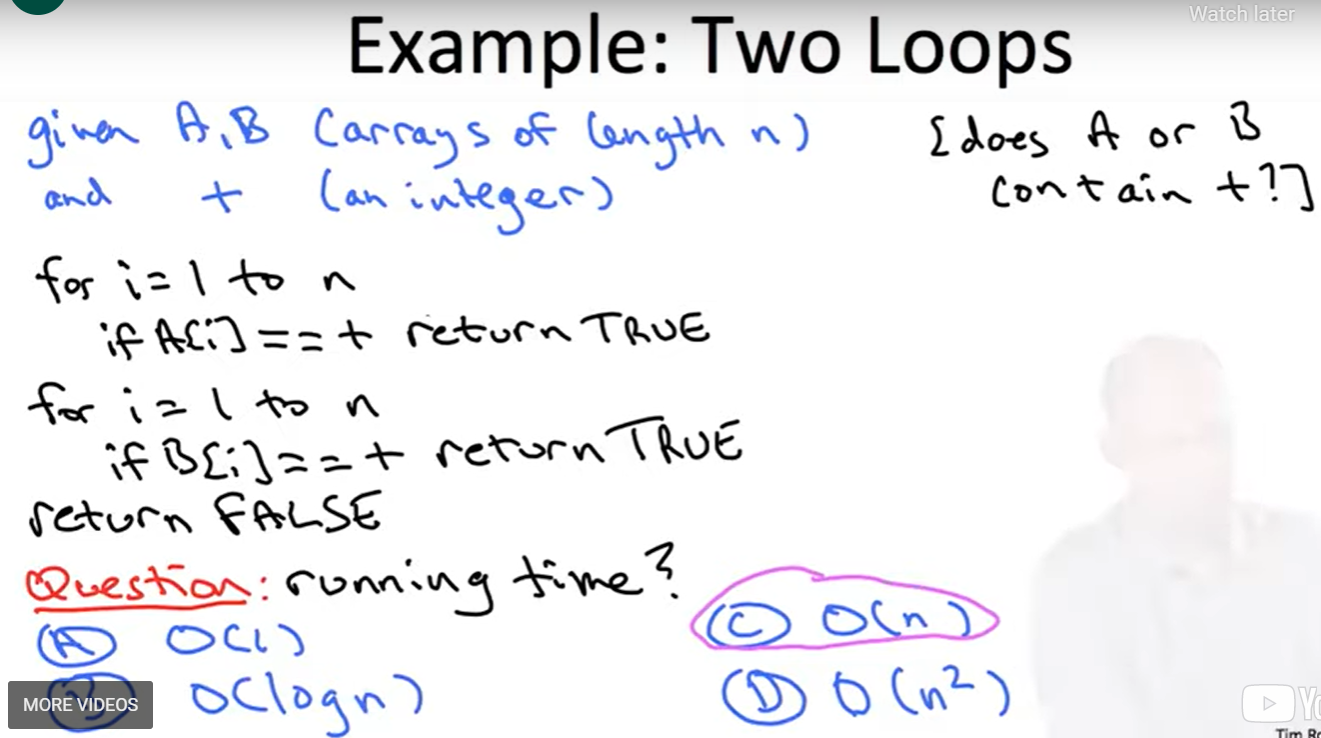 Watch later
Example: Two Loops
given A,B (arrays of length n)
and t (an integer)
[does A or B
contain t?]
for i=1 to n
if A[i]==t return TRUE
for i=1 to n
if B[i]==t return TRUE
return FALSE
Question: running time?
(A) O(1)
O(log n)
(C) O(n)
(D) O(n²)
MORE VIDEOS